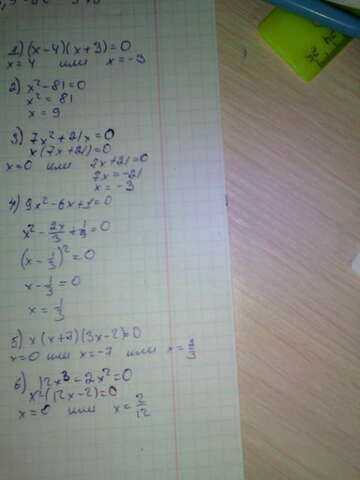 1) (x-4)(x+3)=0
x=4 или x=-3
2) x²-81=0
x²=81
x=9
3) 7x²+21x=0
x(7x+21)=0
x=0 или 7x+21=0
7x=-21
x=-3
4) 9x²-6x+1=0
x²-2x/3+1/9=0
(x-1/3)²=0
x-1/3=0
x=1/3
5) x(x+7)(3x-2)=0
x=0 или x=-7 или x=2/3
6) 12x³-2x²=0
x²(12x-2)=0
x=0 или x=2/12